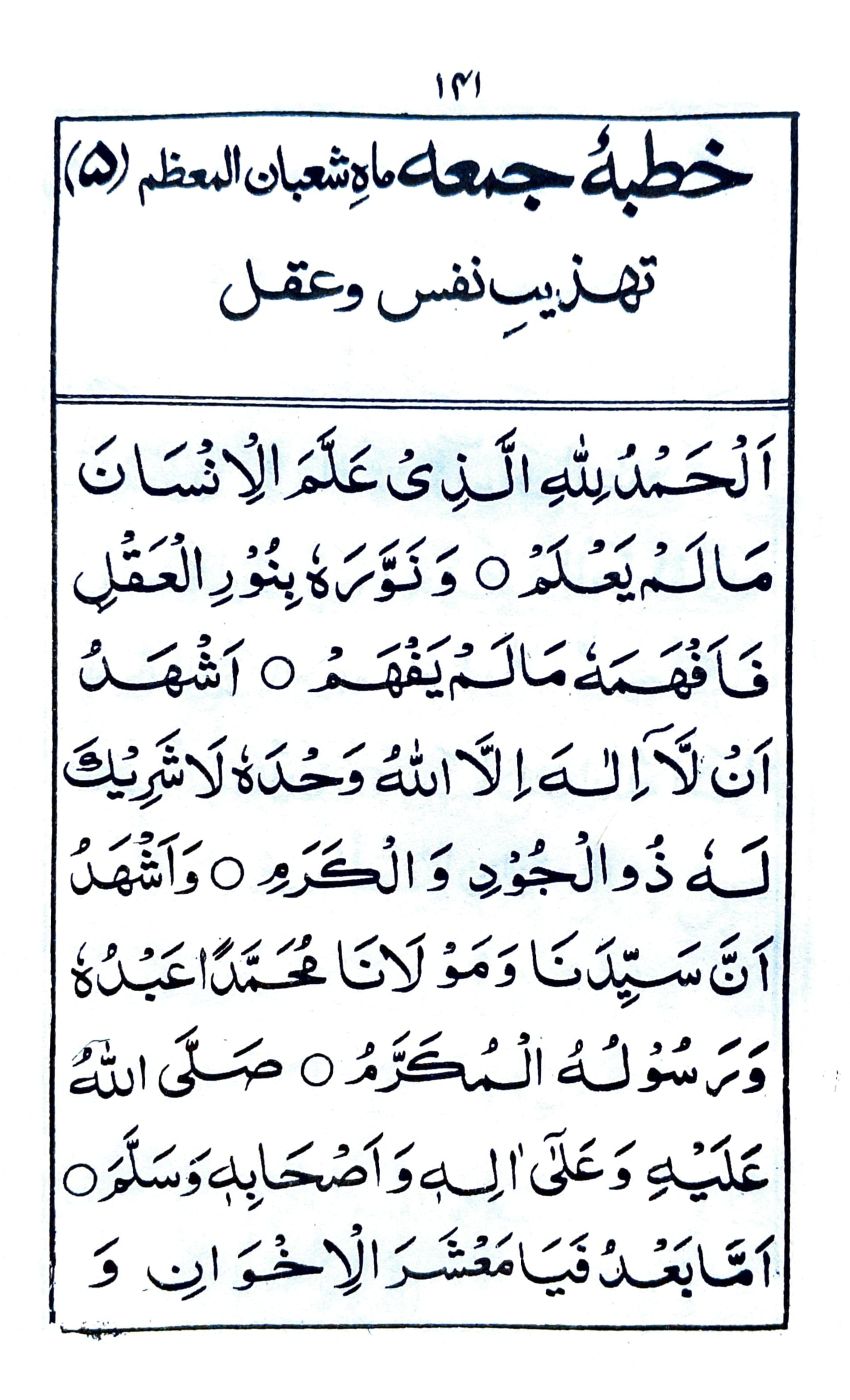 ۱۴۱
خطبۂ جمعہ ماہِ شعبان المعظم (۵)
تہذیبِ نفس وعقل
اَلْحَمْدُ لِلّٰهِ الَّذِیْ عَلَّمَ الْاِنْسَانَ
مَا لَمْ يَعْلَمْ ○ وَ نَوَّرَهٗ بِنُوْرِ الْعَقْلِ
فَاَفْهَمَهٗ مَا لَمْ يَفْهَمْ ○ اَشْهَدُ
اَنْ لَّآ اِلٰهَ اِلَّا اللّٰهُ وَحْدَهٗ لَا شَرِيْكَ
لَهٗ ذُو الْجُوْدِ وَ الْكَرَمِ ○ وَاَشْهَدُ
اَنَّ سَيِّدَنَا وَمَوْلَانَا مُحَمَّدًا عَبْدُهٗ
وَرَسُوْلُهُ الْمُكَرَّمُ ○ صَلَّى اللّٰهُ
عَلَيْهِ وَعَلٰٓى اٰلِهٖ وَاَصْحَابِهٖ وَسَلَّمَ ○
اَمَّا بَعْدُ فَيَا مَعْشَرَ الْاِخْوَانِ وَ